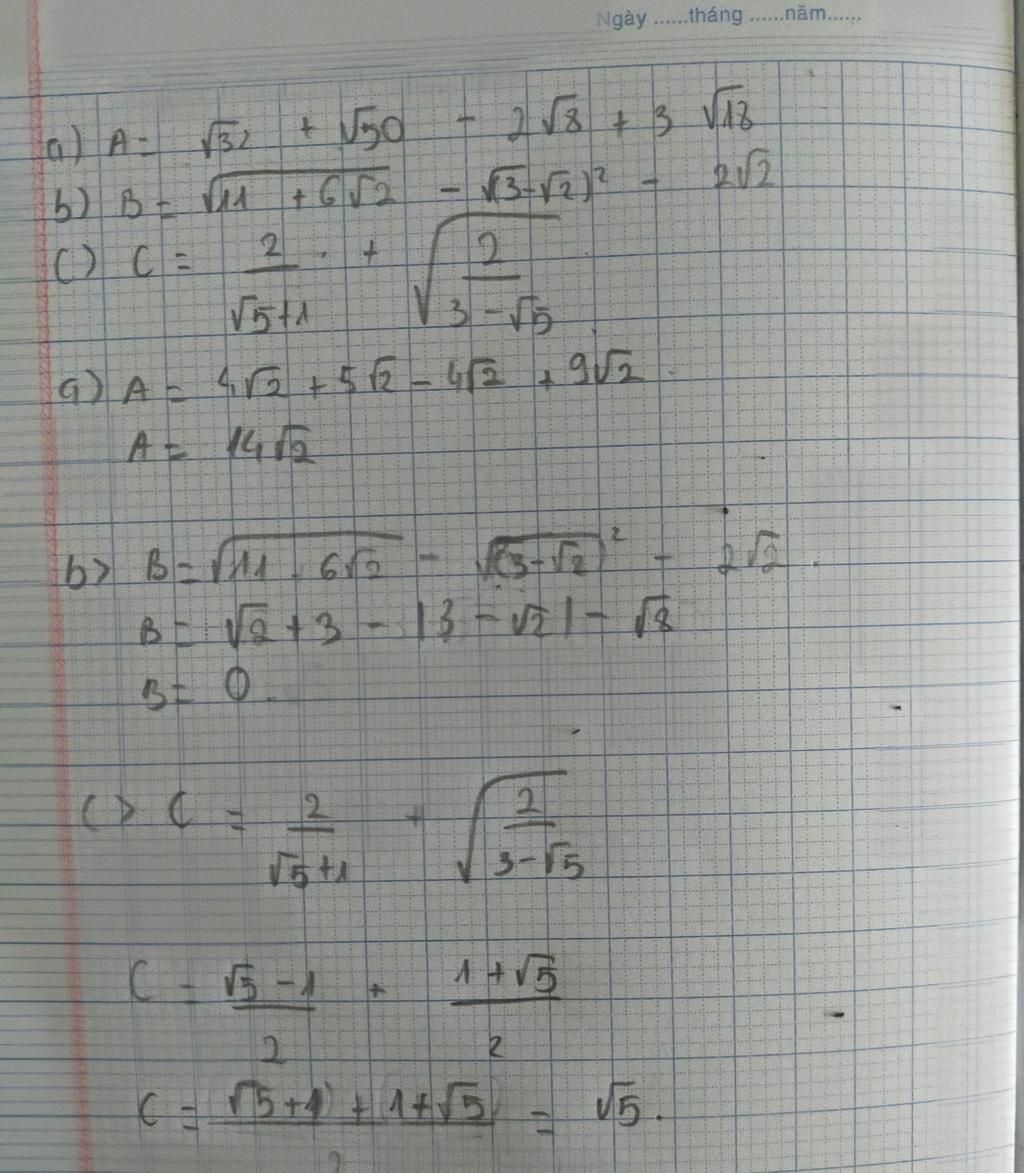 Ngày ......tháng ......năm......
a) A = √32 + √50 - 2√8 + 3 √18
b) B = √(11 + 6√2) - √(3-√2)² - 2√2
c) C = 2/(√5+1) + √(2/(3-√5))
a) A = 4√2 + 5√2 - 4√2 + 9√2
A = 14√2
b> B = √(11 + 6√2) - √(3-√2)² - 2√2.
B = √2 + 3 - |3 - √2| - √8
B = 0.
c> C = 2/(√5+1) + √(2/(3-√5))
C = (√5 - 1)/2 + (1+√5)/2
C = ((√5+1) + (1+√5))/2 = √5.